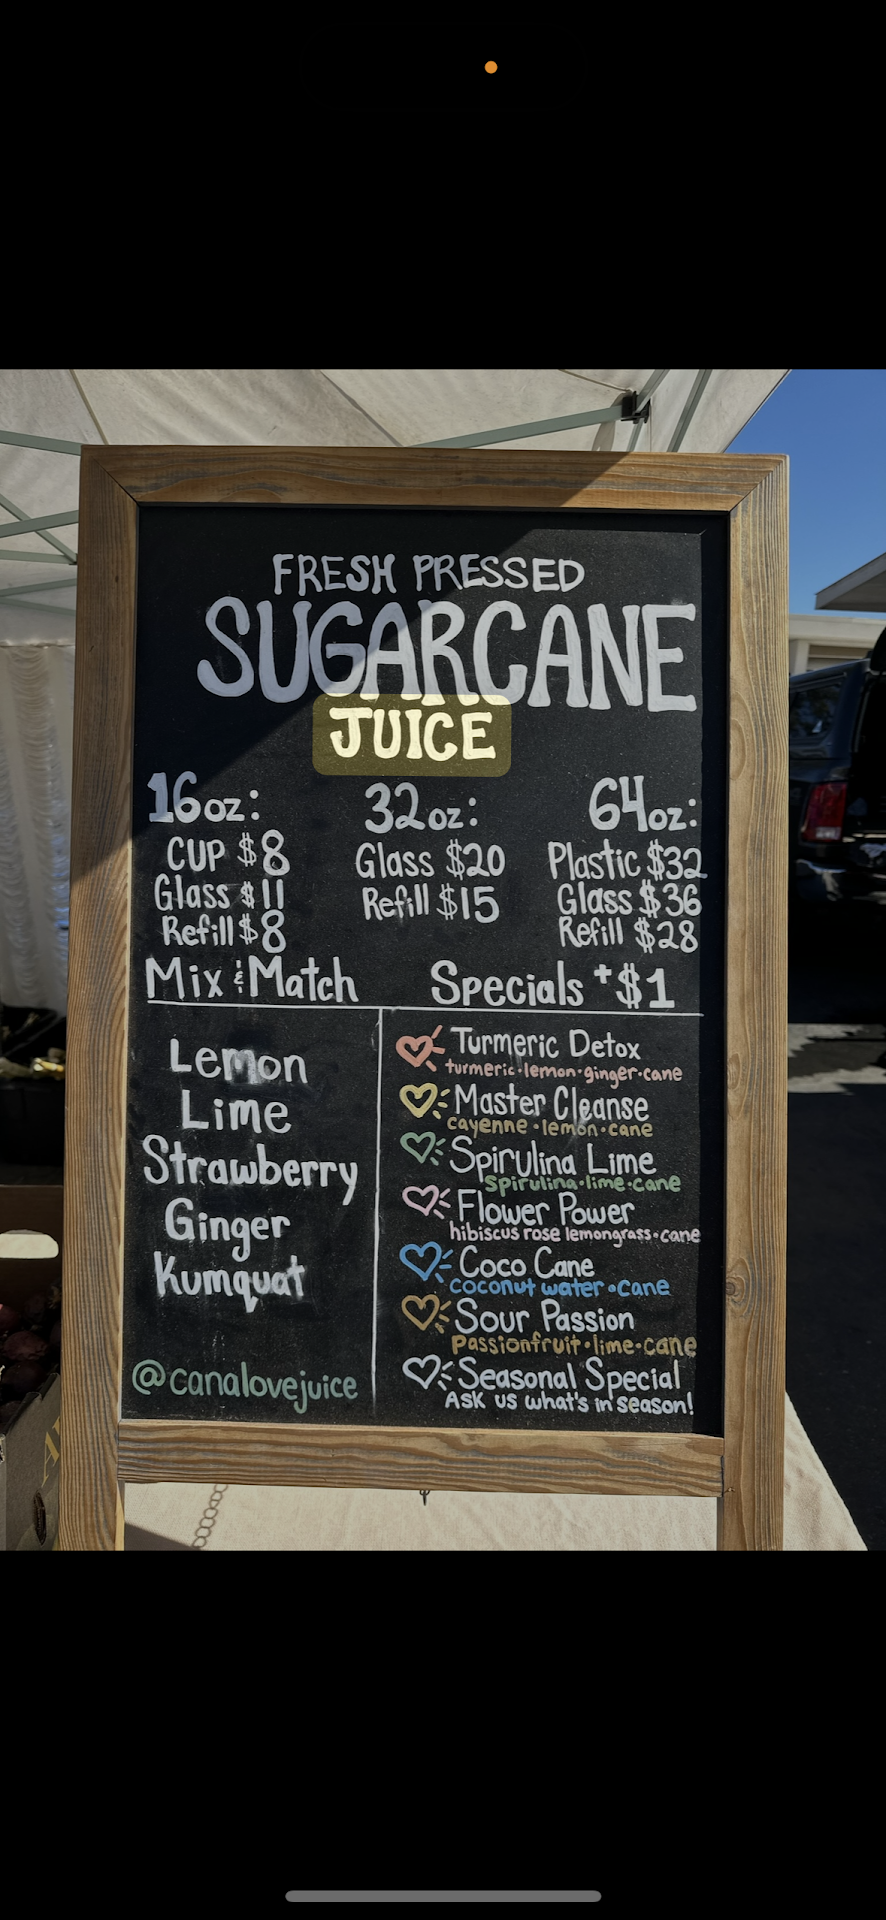 FRESH PRESSED
SUGARCANE
JUICE
16oz:
CUP $8
Glass $11
Refill $8
32oz:
Glass $20
Refill $15
64oz:
Plastic $32
Glass $36
Refill $28
Mix & Match
Lemon
Lime
Strawberry
Ginger
Kumquat
@canalovejuice
Specials +$1
Turmeric Detox
turmeric·lemon·ginger·cane
Master Cleanse
cayenne·lemon·cane
Spirulina Lime
spirulina·lime·cane
Flower Power
hibiscus rose lemongrass·cane
Coco Cane
coconut water·cane
Sour Passion
Passionfruit·lime·cane
Seasonal Special
Ask us what's in season!